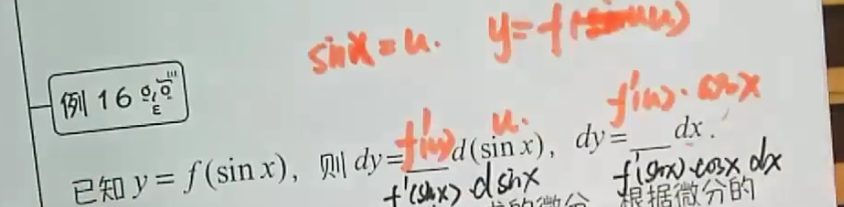 sinx=u. y=f(u)
例 16
f'(u)·cosx
f'(u) u.
已知 y = f(sin x), 则 dy=___d(sin x), dy=___dx.
f'(sinx) dsinx f'(sinx)·cosx dx
的微分 根据微分的